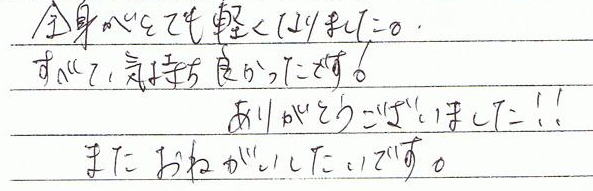 全身がとても軽くなりました。
すべて、気持ち良かったです！
ありがとうございました!!
またおねがいしたいです。